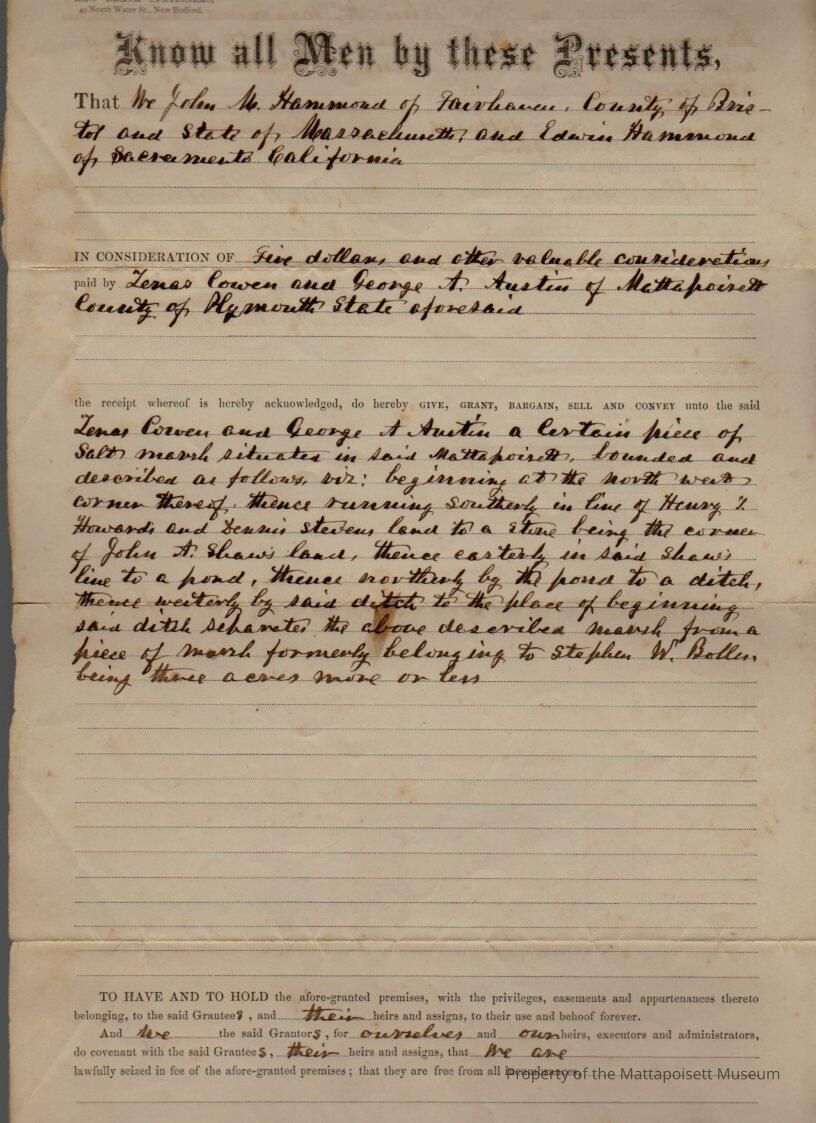 49 North Water St., New Bedford.
Know all Men by these Presents,
That We John M. Hammond of Fairhaven, County of Bris-
tol and State of Massachusetts, and Edwin Hammond
of Sacramento California
IN CONSIDERATION OF Five dollars and other valuable considerations
paid by Zenas Cowen and George A. Austin of Mattapoisett
County of Plymouth State aforesaid
the receipt whereof is hereby acknowledged, do hereby GIVE, GRANT, BARGAIN, SELL AND CONVEY unto the said
Zenas Cowen and George A Austin a Certain piece of
Salt marsh situates in said Mattapoisett, bounded and
described as follows, viz: beginning at the north west
corner thereof, thence running Southerly in line of Henry
Howards and Dennis Stevens land to a Stone being the corner
of John A. Shaw's land, thence easterly in said Shaw's
line to a pond, thence northerly by the pond to a ditch,
thence westerly by said ditch to the place of beginning
said ditch separates the above described marsh from a
piece of marsh formerly belonging to Stephen W. Bolles,
being three acres more or less
TO HAVE AND TO HOLD the afore-granted premises, with the privileges, easements and appurtenances thereto
belonging, to the said Grantees, and their heirs and assigns, to their use and behoof forever.
And We the said Grantors, for ourselves and our heirs, executors and administrators,
do covenant with the said Grantees, their heirs and assigns, that We are
lawfully seized in fee of the afore-granted premises; that they are free from all incumbrances,
Property of the Mattapoisett Museum